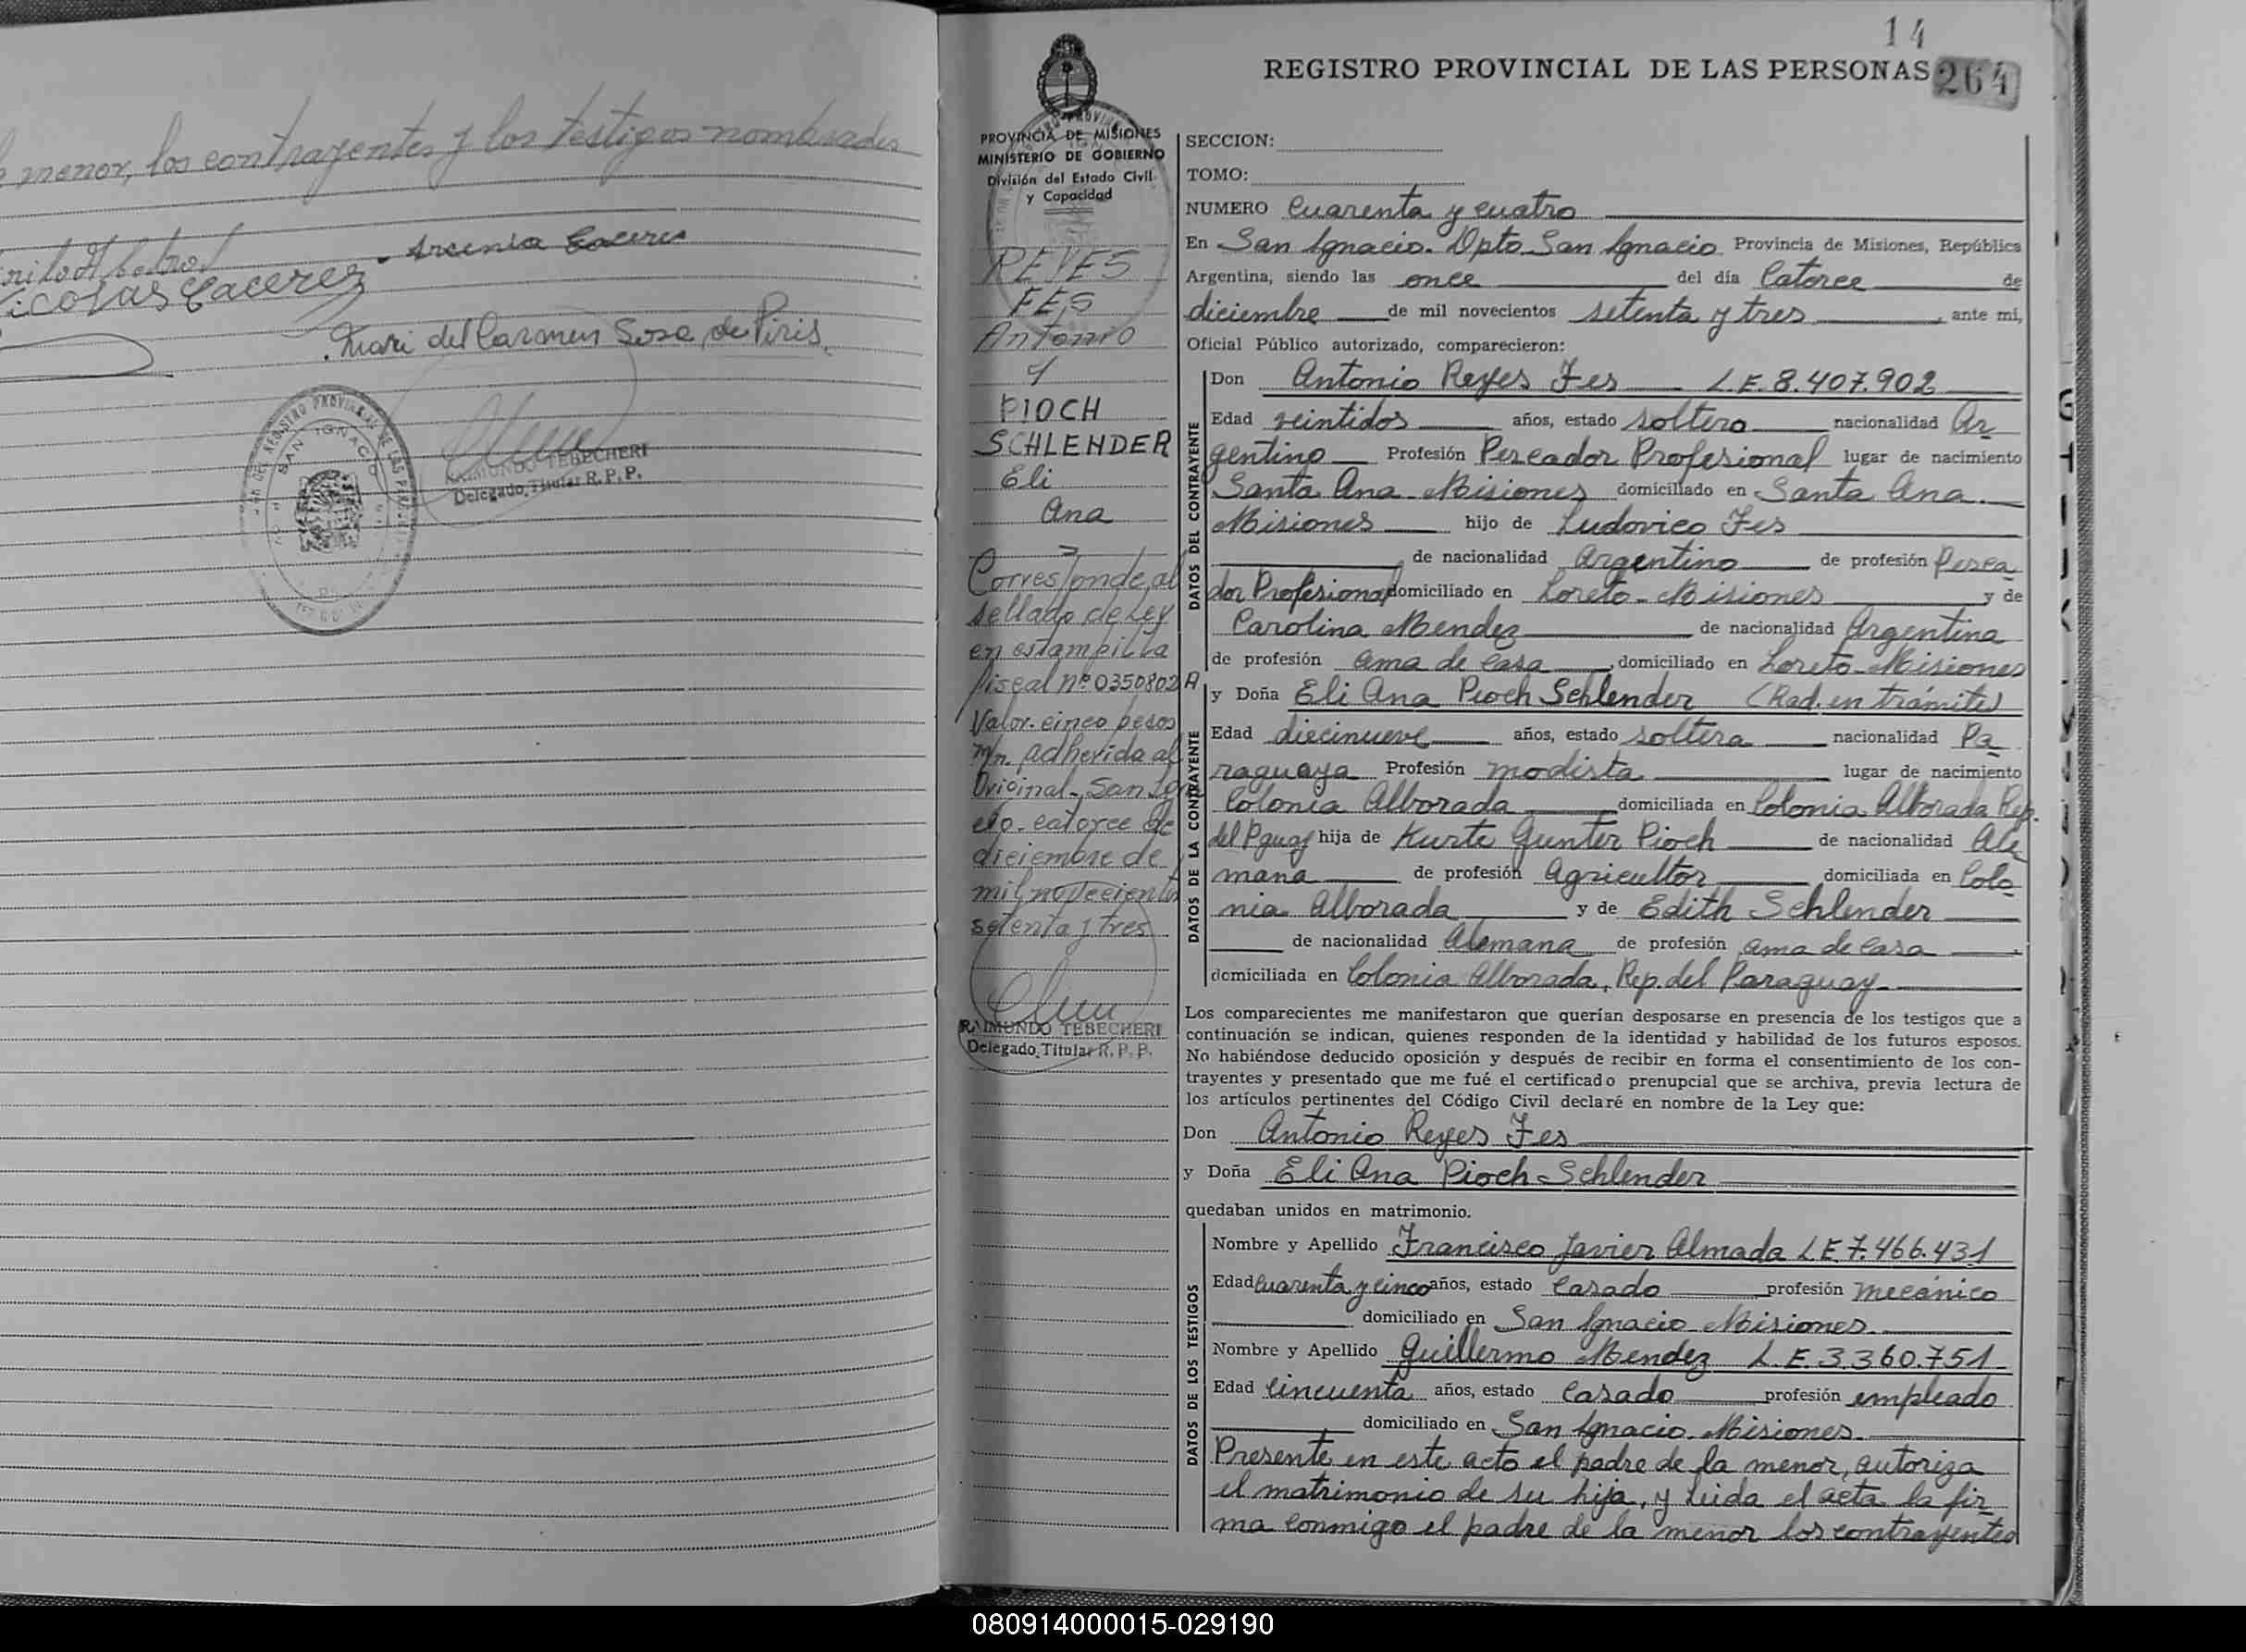 menor, los contrayentes y los testigos nombrados
Arcenia Caceres
Nicolas Caceres
Mari del Carmen Sosa de Piris
SAN IGNACIO
RAIMUNDO TEBECHERI
Delegado Titular R. P. P.
14
REGISTRO PROVINCIAL DE LAS PERSONAS 264
PROVINCIA DE MISIONES
MINISTERIO DE GOBIERNO
División del Estado Civil
y Capacidad
REYES
FES
Antonio
y
PIOCH
SCHLENDER
Eli
Ana
Corresponde al
sellado de Ley
en estampilla
fiscal nº 0350802 A
Valor cinco pesos
m/n. adherida al
Original - San Igna
cio - catorce de
diciembre de
mil novecientos
setenta y tres
RAIMUNDO TEBECHERI
Delegado Titular R. P. P.
SECCION:
TOMO:
NUMERO Cuarenta y cuatro
En San Ignacio - Dpto San Ignacio Provincia de Misiones, República
Argentina, siendo las once del día Catorce de
diciembre de mil novecientos setenta y tres, ante mí,
Oficial Público autorizado, comparecieron:
DATOS DEL CONTRAYENTE
Don Antonio Reyes Fes L.E. 8.407.902
Edad veintidos años, estado soltero nacionalidad Ar
gentino Profesión Pescador Profesional lugar de nacimiento
Santa Ana - Misiones domiciliado en Santa Ana -
Misiones hijo de Ludovico Fes
de nacionalidad Argentino de profesión Pesca
dor Profesional domiciliado en Loreto - Misiones y de
Carolina Mendez de nacionalidad Argentina
de profesión ama de casa, domiciliado en Loreto - Misiones
DATOS DE LA CONTRAYENTE
y Doña Eli Ana Pioch Schlender (Rad. en trámite)
Edad diecinueve años, estado soltera nacionalidad Pa
raguaya Profesión modista lugar de nacimiento
Colonia Alborada domiciliada en Colonia Alborada Rep.
del Pguay hija de Kurte Gunter Pioch de nacionalidad Ale
mana de profesión Agricultor domiciliada en Colo
nia Alborada y de Edith Schlender
de nacionalidad Alemana de profesión ama de casa,
domiciliada en Colonia Alborada, Rep. del Paraguay -
Los comparecientes me manifestaron que querían desposarse en presencia de los testigos que a
continuación se indican, quienes responden de la identidad y habilidad de los futuros esposos.
No habiéndose deducido oposición y después de recibir en forma el consentimiento de los con-
trayentes y presentado que me fué el certificado prenupcial que se archiva, previa lectura de
los artículos pertinentes del Código Civil declaré en nombre de la Ley que:
Don Antonio Reyes Fes
y Doña Eli Ana Pioch - Schlender
quedaban unidos en matrimonio.
DATOS DE LOS TESTIGOS
Nombre y Apellido Francisco Javier Almada L.E. 7.466.431
Edad cuarenta y cinco años, estado Casado profesión mecánico
domiciliado en San Ignacio - Misiones
Nombre y Apellido Guillermo Mendez L.E. 3.360.751
Edad Cincuenta años, estado Casado profesión empleado
domiciliado en San Ignacio - Misiones
Presente en este acto el padre de la menor, autoriza
el matrimonio de su hija, y leida el acta la fir
ma conmigo el padre de la menor los contrayentes
080914000015-029190